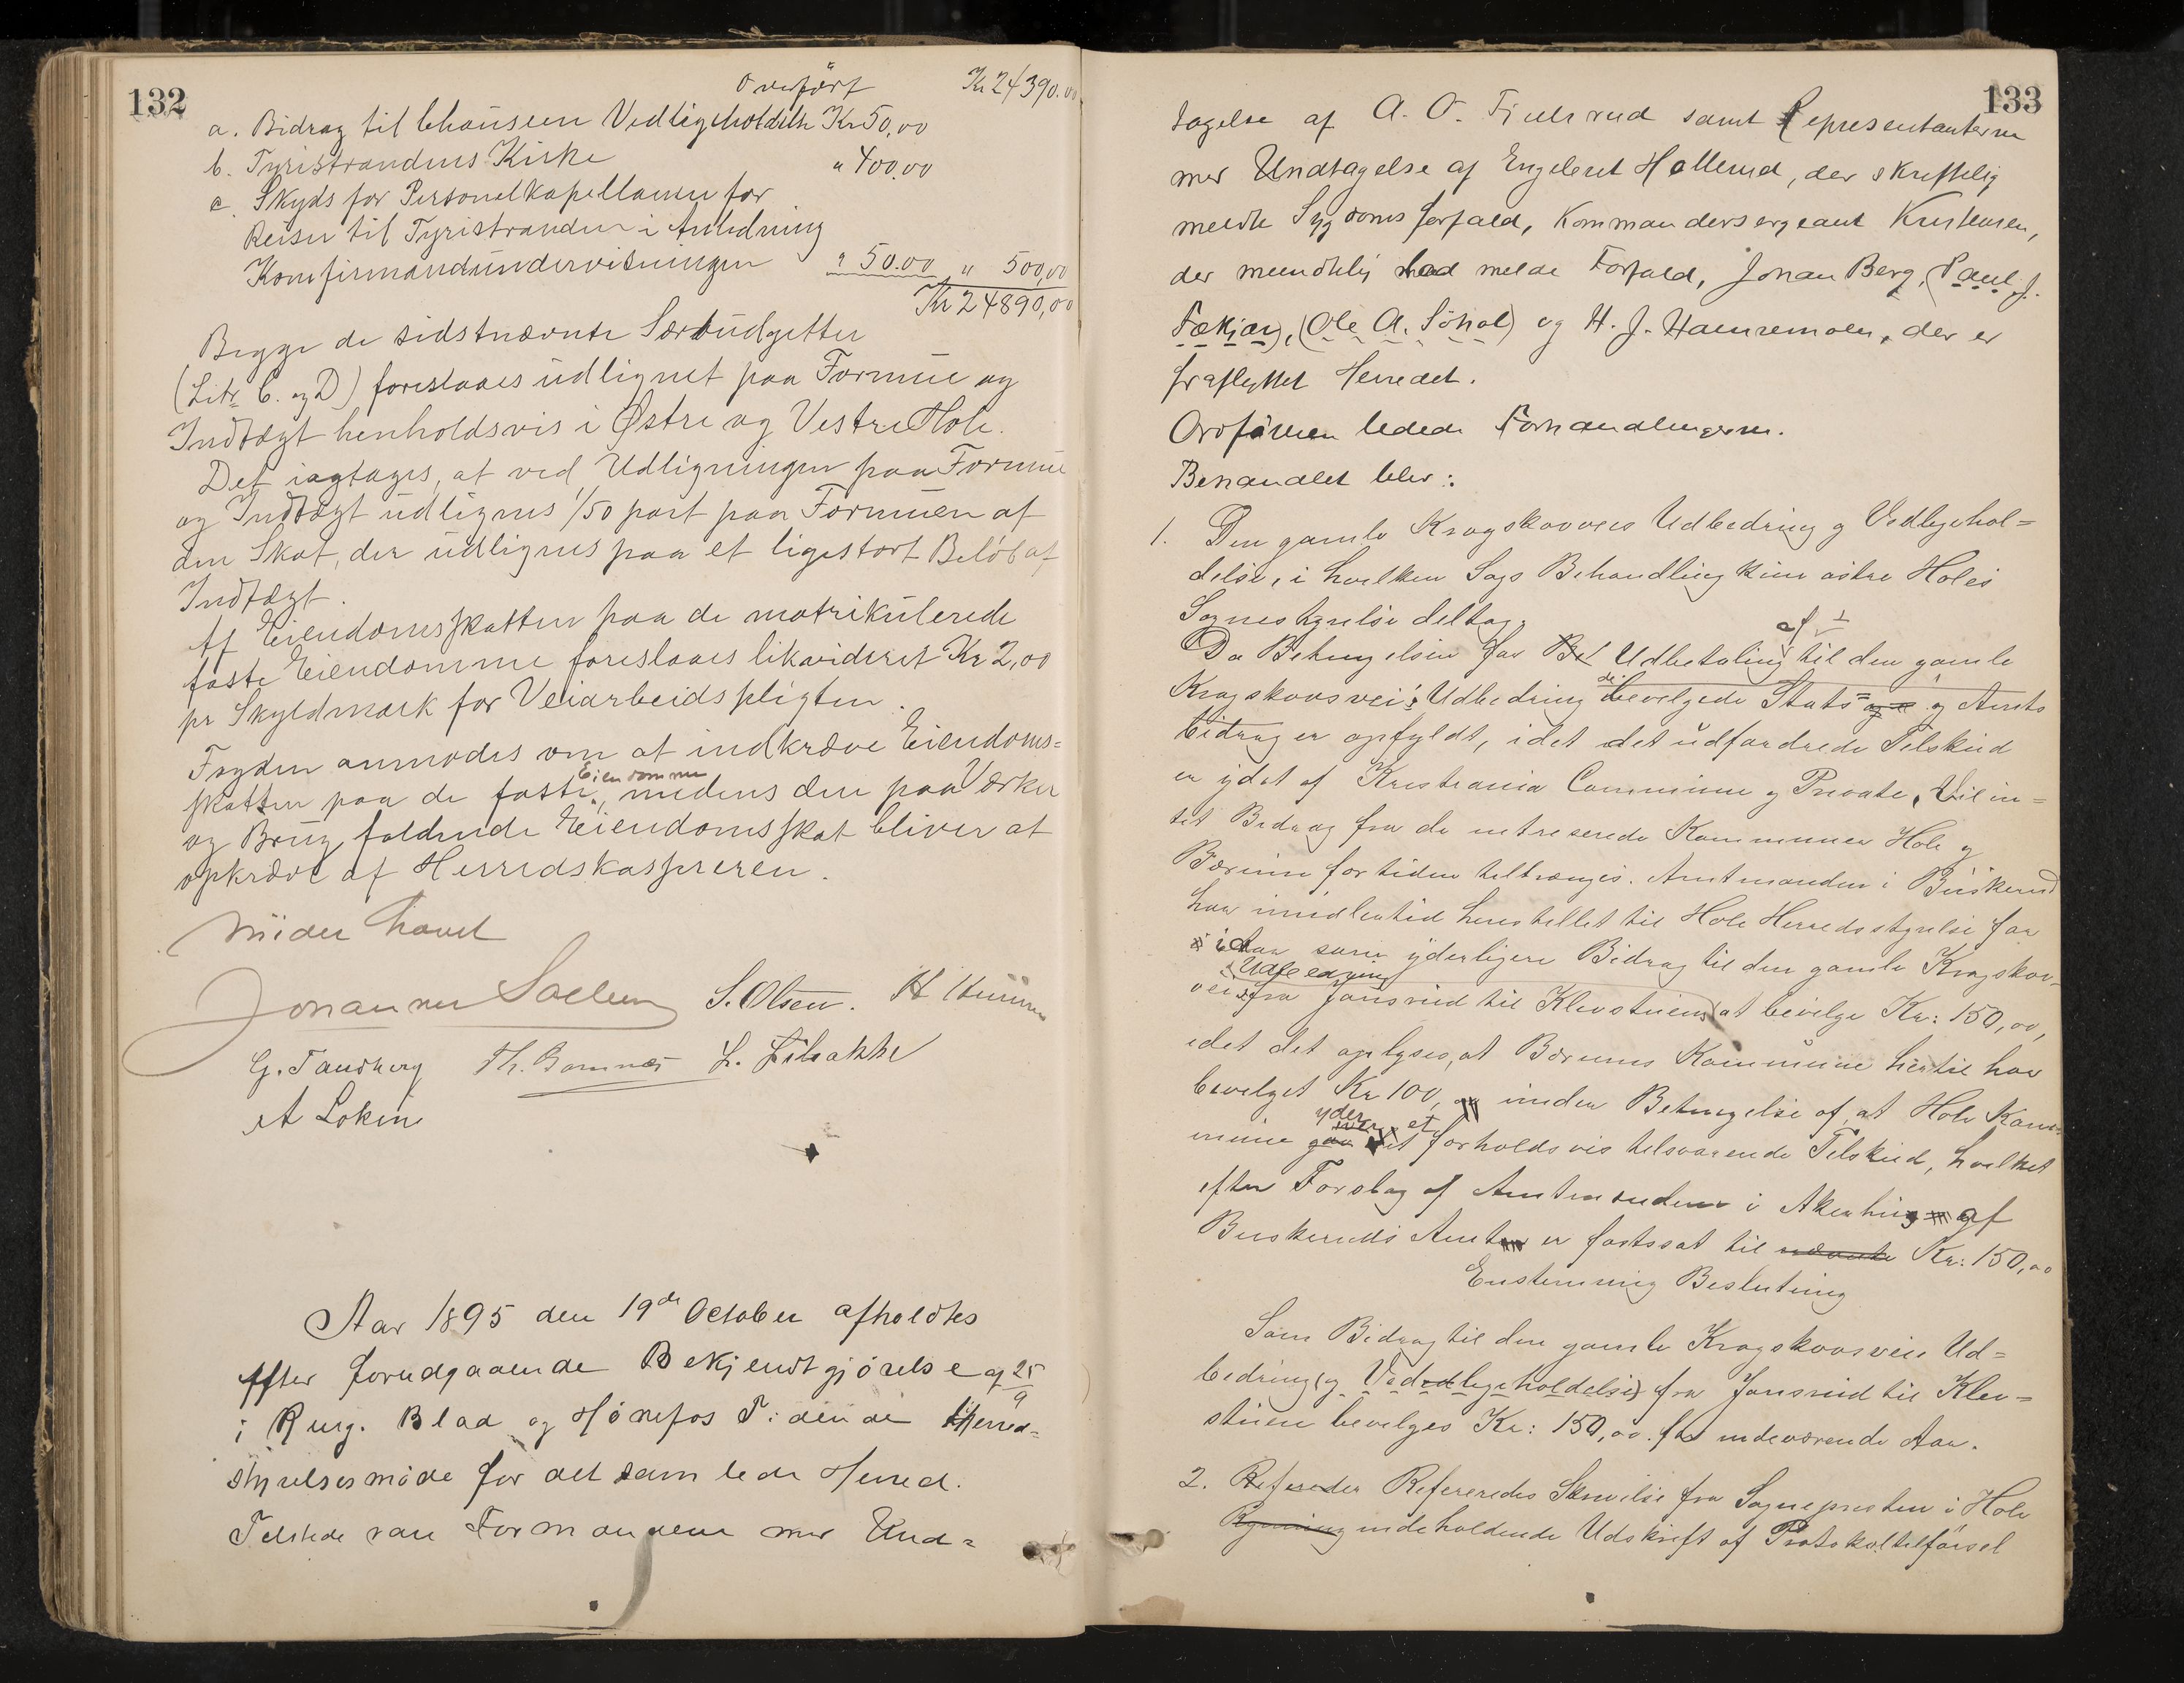 132
Overført Kr 24390.00
a. Bidrag til Chauseen Vedligeholdelse Kr 50,00
b. Tyristrandens Kirke " 400.00
c. Skyds for Personelkapellanen for
Reiser til Tyristranden i Anledning
Konfirmandundervisningen " 50.00 " 500,00
Kr 24890,00
Begge de sidstnævnte Særbudgetter
(Litr C. og D) foreslaaes udlignet paa Formue og
Indtægt henholdsvis i Østre og Vestre Hole.
Det iagtages, at ved Udligningen paa Formue
og Indtægt udlignes 1/50 part paa Formuen af
den Skat, der udlignes paa et ligestort Beløb af
Indtægt.
Af Eiendomsskatten paa de matrikulerede
faste Eiendomme foreslaaes likvideret Kr 2,00
pr Skyldmark for Veiarbeidspligten.
Fogden anmodes om at indkræve Eiendoms=
skatten paa de faste Eiendomme, medens den paa Værker
og Brug faldende Eiendomsskat bliver at
opkræve af Herredskassereren.
Møder hævet
Johannes Sællen S. Olsen. H
G. Tandberg Th. Bamnæs L. Lilaakke
A Løken
Aar 1895 den 19de October afholdtes
efter forudgaaende Bekjendtgjørelse af 25/9
i Ring. Blad og Hønefos Tidende Herred=
styrelsesmøde for det samlede Herred.
Tilstede var Formændene med Und=
133
tagelse af A. O. Fjeldrud samt Repræsentanterne
med Undtagelse af Engebret Hollerud, der skriftelig
meldte Sygdoms forfald, Kommandersergeant Kristensen,
der mundtlig lod melde Forfald, Johan Berg, (Paul J.
Fækjær), (Ole A. Søhol) og H. J. Hamremoen, der er
fraflyttet Herredet.
Ordføreren ledede Forhandlingerne.
Behandlet blev:
1. Den gamle Kragskovveis Udbedring og Vedligehol=
delse, i hvilken Sags Behandling kun østre Holes
Sognestyrelse deltog.
Da Betingelsen for Udbetaling af til den gamle
Kragskovsvei's Udbedring de bevilgede Stats= og Amts
bidrag er opfyldt, idet det udfordrede Tilskud
er ydet af Kristiania Commune og Private, vil in=
tet Bidrag fra de interesserede Kommuner Hole og
Bærum for tiden tiltrænges. Amtmanden i Buskerud
har imidlertid henstillet til Hole Herredsstyrelse for
iaar som yderligere Bidrag til den gamle Kragskov-
veis Udbedring fra Jonsrud til Klevstuen at bevilge Kr: 150,00,
idet det oplyses, at Bærums Kommune hertil har
bevilget Kr 100, under Betingelse af, at Hole Kom=
mune yder et forholdsvis tilsvarende Tilskud, hvilket
efter Forslag af Amtmanden i Akershus af
Buskeruds Amt er fastsat til nævnte Kr: 150,00
Enstemmig Beslutning
Som Bidrag til den gamle Kragskovsveis Ud=
bedring (og Vedligeholdelse) fra Jonsrud til Klev=
stuen bevilges Kr: 150,00 for indeværende Aar.
2. Refereder Refereredes Skrivelse fra Sognepresten i Hole
indeholdende Udskrift af Protokoltilførsel